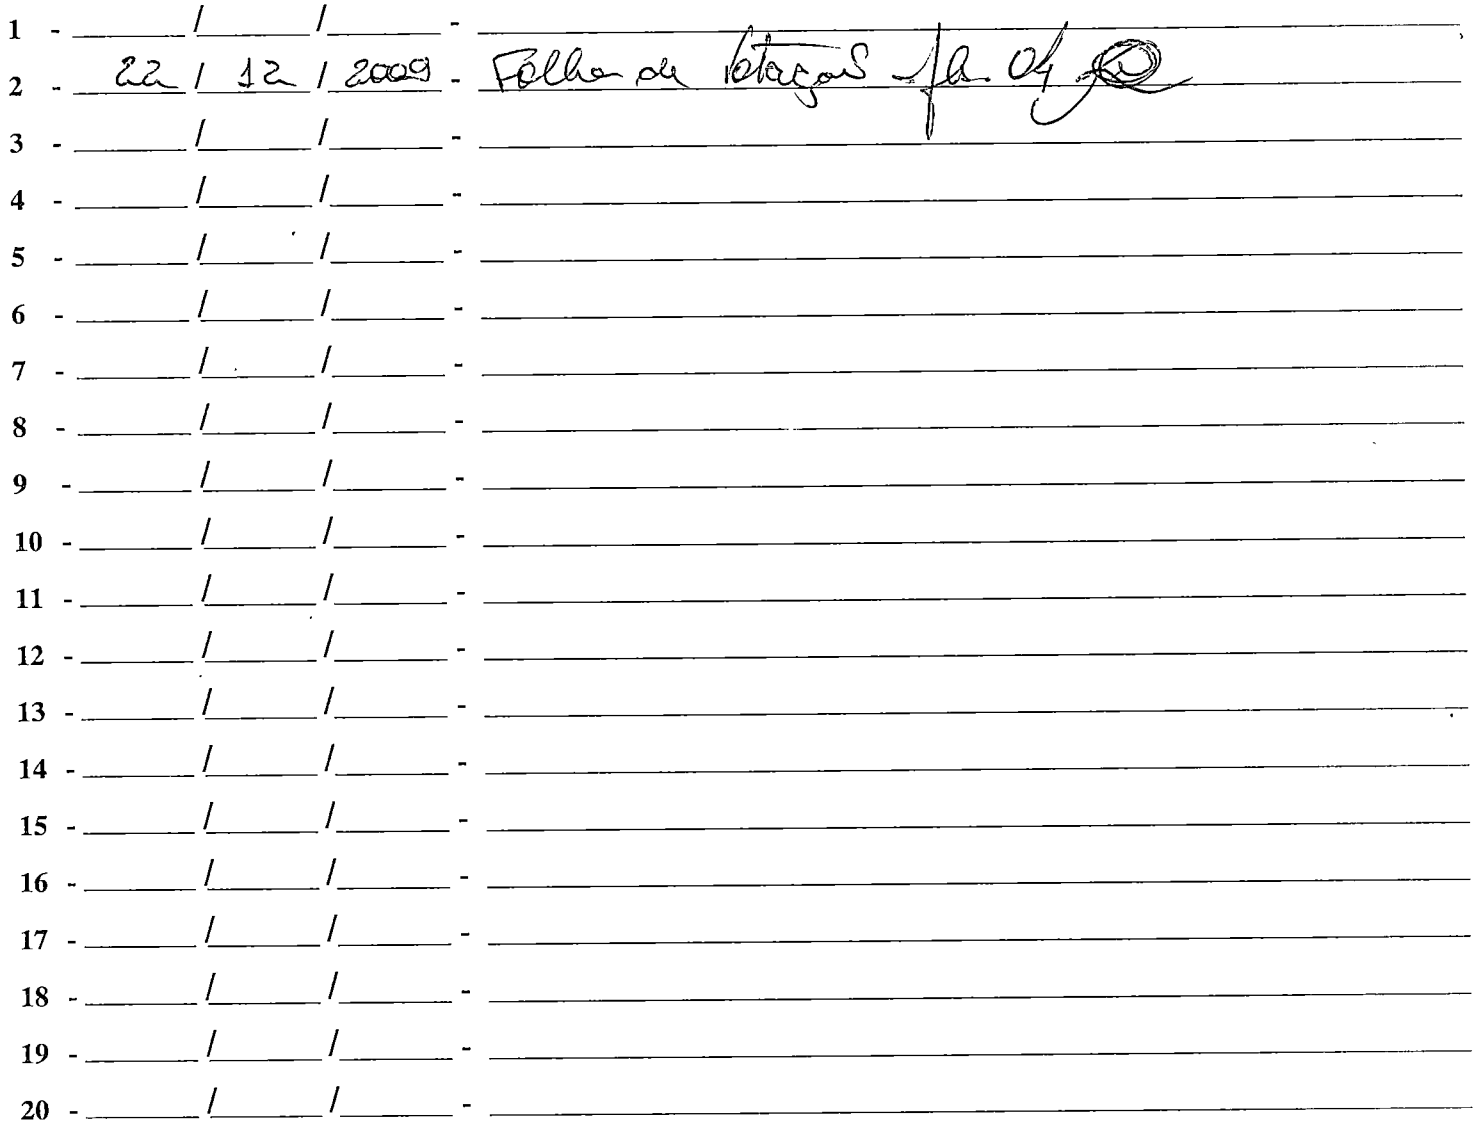 1 - ______ / ______ / ______ - ______
2 - 22 / 12 / 2009 - Folha de Votação fl. 04
3 - ______ / ______ / ______ - ______
4 - ______ / ______ / ______ - ______
5 - ______ / ______ / ______ - ______
6 - ______ / ______ / ______ - ______
7 - ______ / ______ / ______ - ______
8 - ______ / ______ / ______ - ______
9 - ______ / ______ / ______ - ______
10 - ______ / ______ / ______ - ______
11 - ______ / ______ / ______ - ______
12 - ______ / ______ / ______ - ______
13 - ______ / ______ / ______ - ______
14 - ______ / ______ / ______ - ______
15 - ______ / ______ / ______ - ______
16 - ______ / ______ / ______ - ______
17 - ______ / ______ / ______ - ______
18 - ______ / ______ / ______ - ______
19 - ______ / ______ / ______ - ______
20 - ______ / ______ / ______ - ______